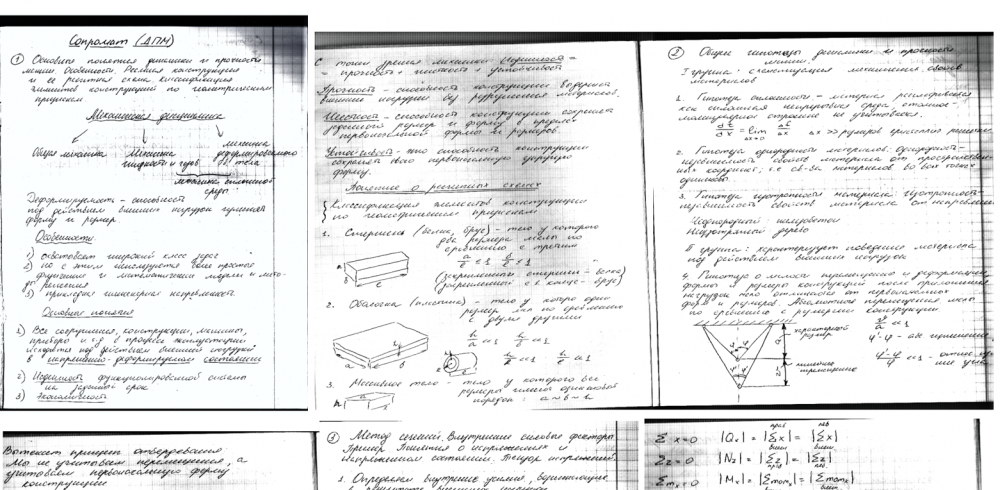 Сопромат (ДПМ)
① Основные понятия динамики и прочности
машин. Особенности. Реальная конструкция
и ее расчетная схема. Классификация
элементов конструкций по геометрическим
признакам.
Механические дисциплины
Общая механика
Механика
жидкости и газов
механика
деформируемого
тв. тела
механика сплошной
среды
Деформируемость - способность
под действием внешних нагрузок изменять
форму и размер.
Особенности:
1) охватывает широкий класс задач
2) но с этим используются более простые
физические и математические модели и мето-
ды решения
3) прикладная инженерная направленность
Основные понятия
1) Все сооружения, конструкции, машины,
приборы и т.д в процессе эксплуатации
находятся под действием внешней нагрузки
в напряженно-деформируемом состоянии
2) Надежность функционирования системы
на заданный срок
3) Экономичность
С точки зрения механики надежность =
= прочность + жесткость + устойчивость
Прочность - способность конструкции выдержать
внешние нагрузки без разрушения материалов.
Жесткость - способность конструкции сохранять
размеры и форму в пределах
первоначальной формы и размеров.
Устойчивость - это способность конструкции
сохранять свою первоначальную упругую
форму.
Понятие о расчетных схемах
Классификация элементов конструкции
по геометрическим признакам
1. Стержень (балка, брус) - тело у которого
два размера малы по
сравнению с третьим
a/c << 1 b/c << 1
(закрепленный стержень - балка)
(закрепленный с 2 концов - брус)
2. Оболочка (пластина) - тело у которого один
размер мал по сравнению
с двумя другими
h/a << 1 h/b << 1
3. Массивное тело - тело у которого все
размеры имеют одинаковый
порядок: a ~ b ~ h
② Общие гипотезы динамики и прочности
машин.
I группа: схематизация механических свойств
материалов
1. Гипотеза сплошности - материал рассматривается
как сплошная непрерывная среда, атомно-
молекулярное строение не учитывается.
Δx >> размеров кристалла решетки
2. Гипотеза однородности материалов: однородность -
независимость свойств материала от пространствен-
ных координат; т.е св-ва материалов во всех точках
одинаковы
3. Гипотеза изотропности материала: изотропность -
независимость свойств материала от направления
Неоднородный - железобетон
Неизотропный - дерево
II группа: характеризует поведение материала
под действием внешних нагрузок
4. Гипотеза о малости перемещений и деформаций
формы и размеры конструкций после приложения
нагрузок мало отличаются от первоначальных
форм и размеров. Абсолютные перемещения малы
по сравнению с размерами конструкции
характерный
размер
типичное
перемещение
Вытекает принцип отвердевания
Мы не учитываем перемещения, а
учитываем первоначальную форму
конструкции
③ Метод сечений. Внутренние силовые факторы
Пример. Понятия о напряжениях и
напряженном состоянии. Тензор напряжений.
1. Определяем внутренние усилия, возникающие
Σx=0 |Qx| = |Σx| = |Σx|
Σz=0 |Nz| = |Σz| = |Σz|
Σmx=0 |Mx| = |Σmomx| = |Σmomx|